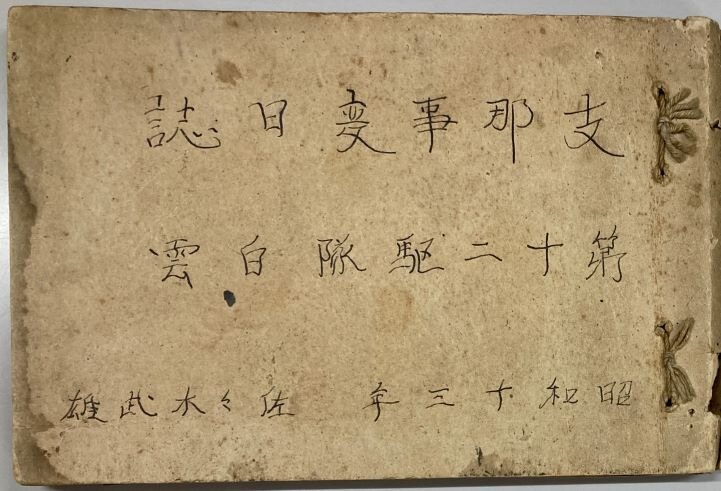 支那事変日誌
第十二駆隊白雲
昭和十三年 佐々木武雄